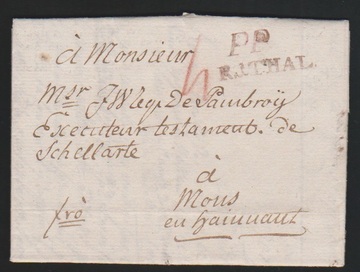 à Monsieur
PP
R.ÚTHAL.
Msr J W leg. De Sambroÿ
Executeur testament. de
Schellarte
à
Mons
en hainnaut
frò